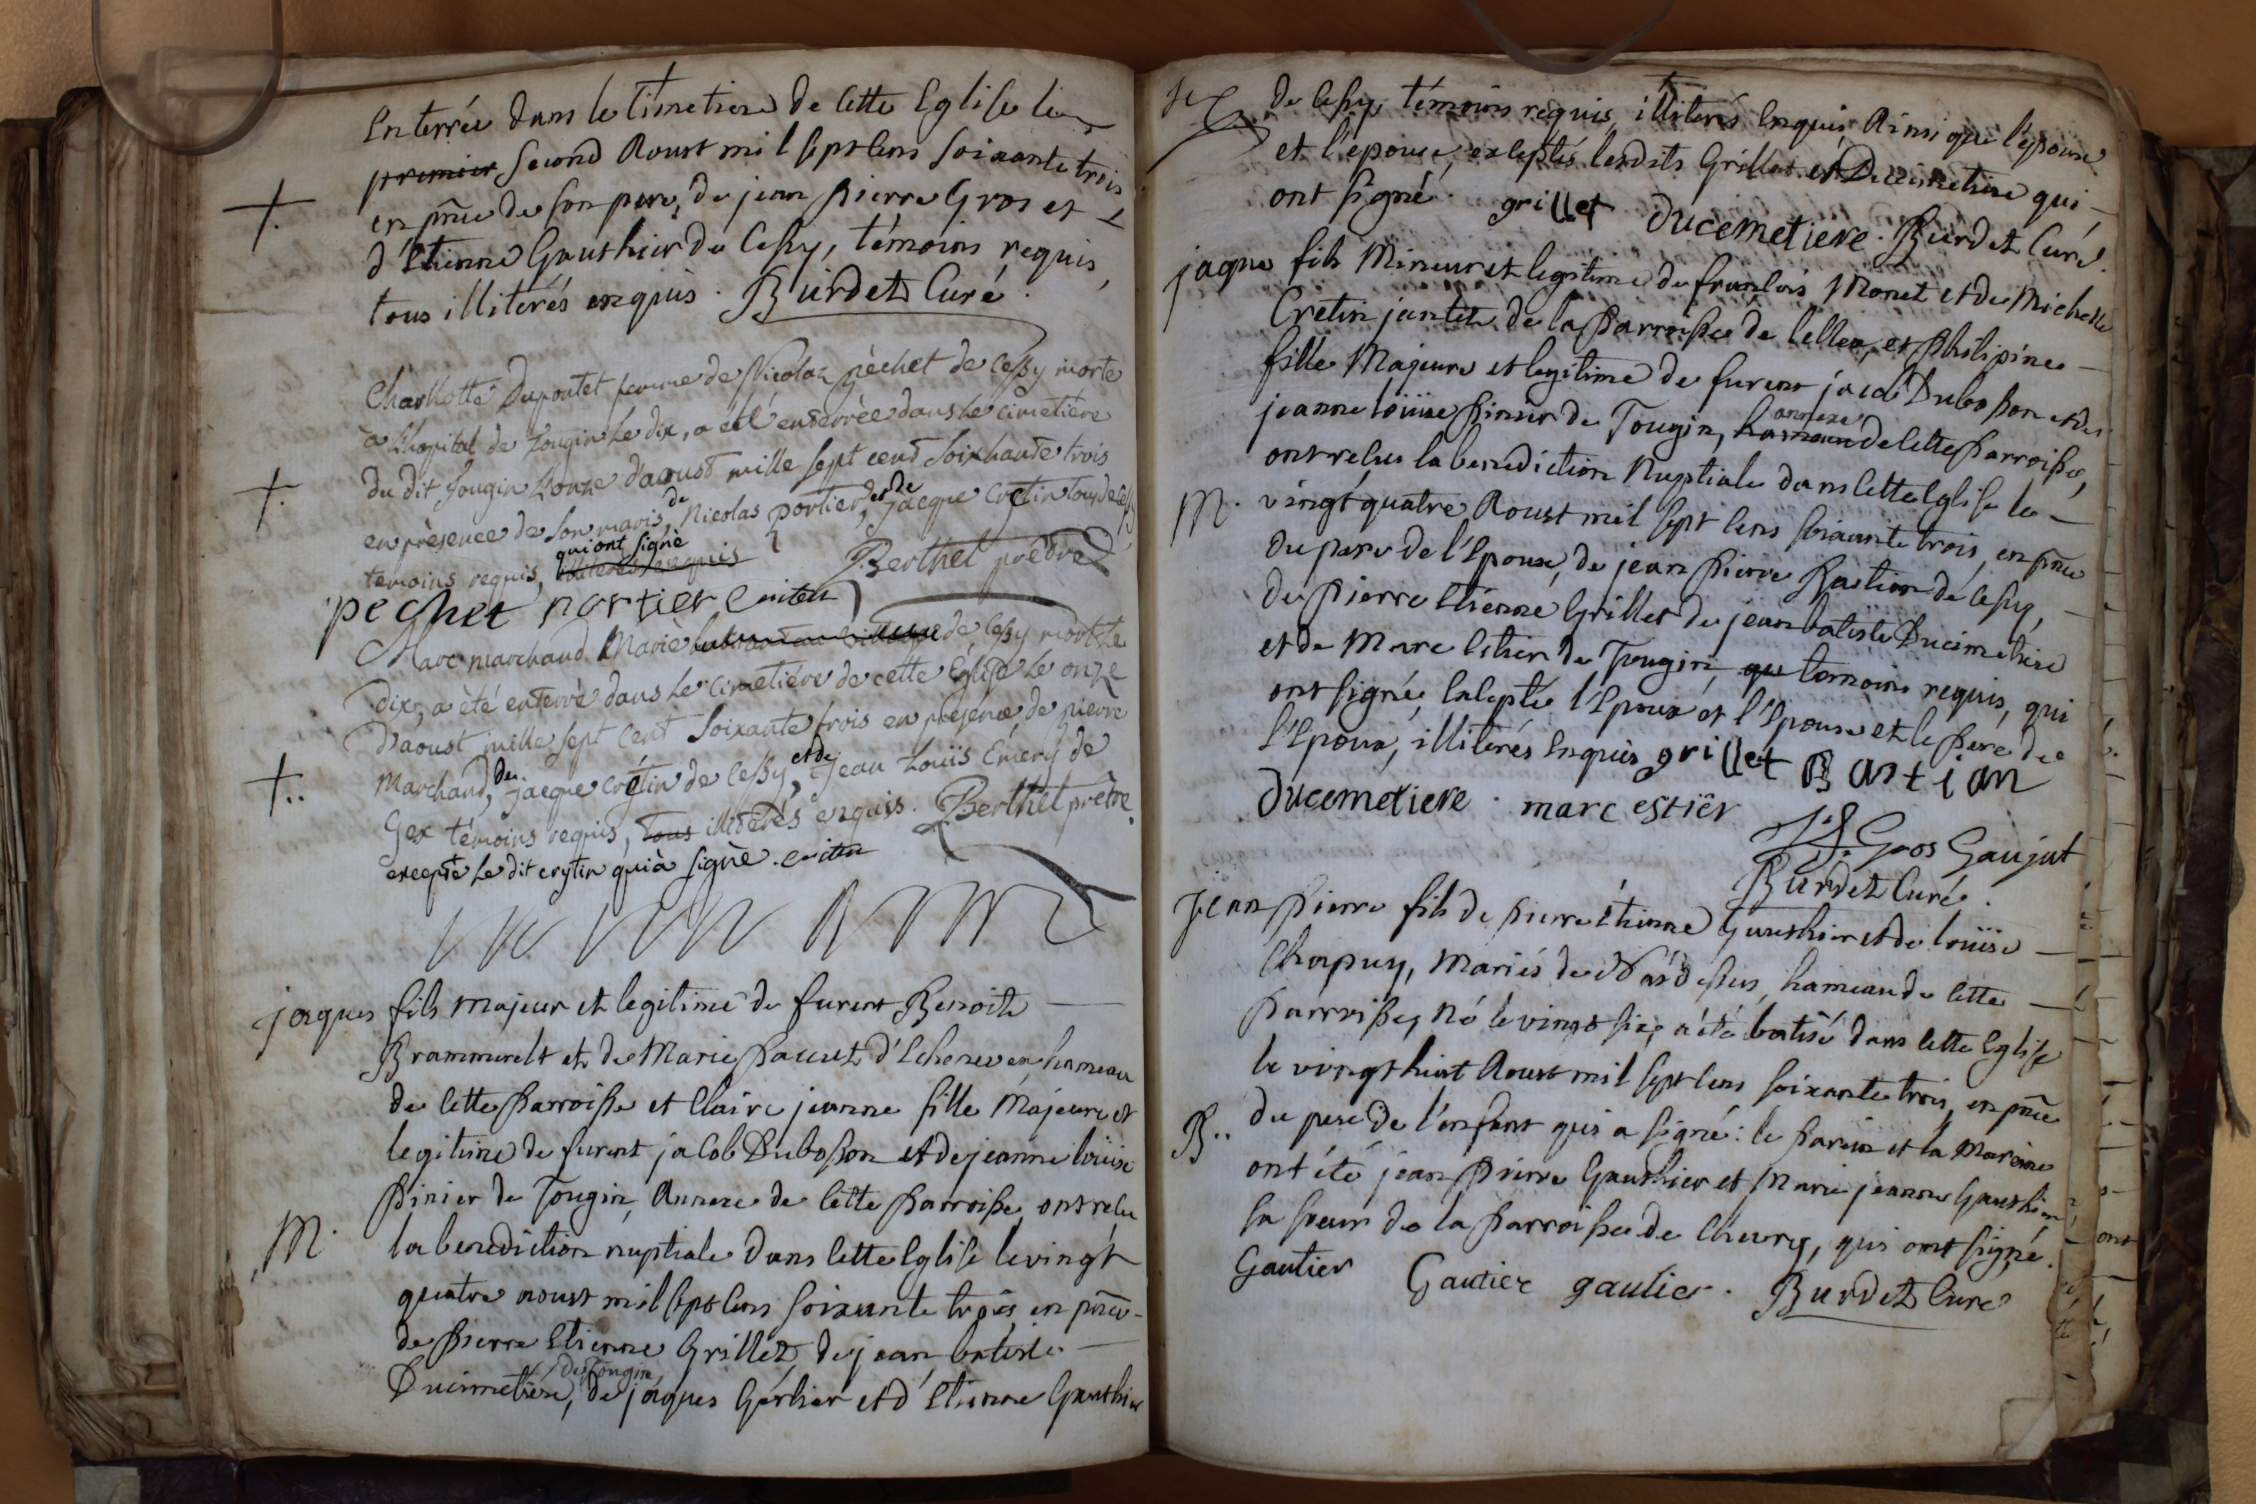 Enterrée dans le Cimetiere de cette Eglise le
premier second Aoust mil sept cens soixante trois
en pñce de son pere, de jean pierre Gros et
d'Etienne Gauthier de Cessy, témoins requis,
tous illiterés enquis. Burdet Curé.
Charlotte Dupontet femme de Nicolaz pèchet de Cessy morte
à l'hopital de Tougin le dix, a été enterrèe dans le cimetière
du dit Tougin l'onze d'aoust mille sept cent soixante trois
en prèsence de son maris, de Nicolas portier, et de jacque cretin tous de Cessy
temoins requis, qui ont signè
pechet portier Berthet prêtre
Marc marchand Marié de Cessy mort le
dix, a été enterrè dans le cimetiére de cette Eglise le onze
d'aoust mille sept cent soixante trois en présence de pierre
Marchand, de jacque crétin de Cessy, et de jean Louis Emery de
Gex témoins requis, tous illiterés enquis. Berthet prêtre.
exceptè le dit crétin qui à signè.
jaques fils majeur et legitime de furent Benoite
et de Marie d'Echenevex hameau
de cette parroisse et Claire jeanne fille Majeure et
legitime de furent jacob Dubosson et de jeanne loüise
pinier de Tougin, Annexe de cette parroisse, ont reçu
M. la benediction nuptiale dans cette Eglise le vingt
quatre aoust mil sept cens soixante trois, en pñce
de pierre Etienne Grillet, de jean batiste
Ducimetière, de Tougin, de jaques Gerlier et d'Etienne Gauthier
de Cessy, témoins requis, illiterés enquis, Ainsi que l'epoux
et l'epouse, exceptés lesdits Grillet et Ducimetiere qui
ont signé. grillet ducemetiere. Burdet Curé.
jaque fils Mineur et legitime de françois Monet et de Michelle
Cretin jantet de la parroisse de lellex, et philipine
fille Majeure et legitime de furent jacob Dubosson et de
jeanne loüise pinier de Tougin, hameau annexe de cette parroisse,
ont reçus la benediction Nuptiale dans cette Eglise le
M. vingt quatre Aoust mil sept cens soixante trois, en pñce
du pere de l'Epoux, de jean pierre Bastian de Cessy,
de pierre Etienne Grillet de jean batiste Ducimetiere
et de Marc Etier de Tougin, témoins requis, qui
ont signé, excepté l'Epoux et l'Epouse et le pere de
l'Epoux, illiterés enquis grillet Bastian
ducemetiere. marc estiér
Gros Gaujat
Burdet Curé.
jean pierre fils de pierre Etienne Gauthier et de loüise
Chapuy, Mariés de Naz dessus, hameau de cette
parroisse, Né le vingt six, a été batisé dans cette Eglise
le vingt huit Aoust mil sept cens soixante trois, en pñce
B.. du pere de l'enfant qui a signé: le parein et la Mareine
ont été jean pierre Gauthier et Marie jeanne Gauthier
sa soeur de la parroisse de Chevry, qui ont signé.
Gautier Gautier gautier. Burdet Curé